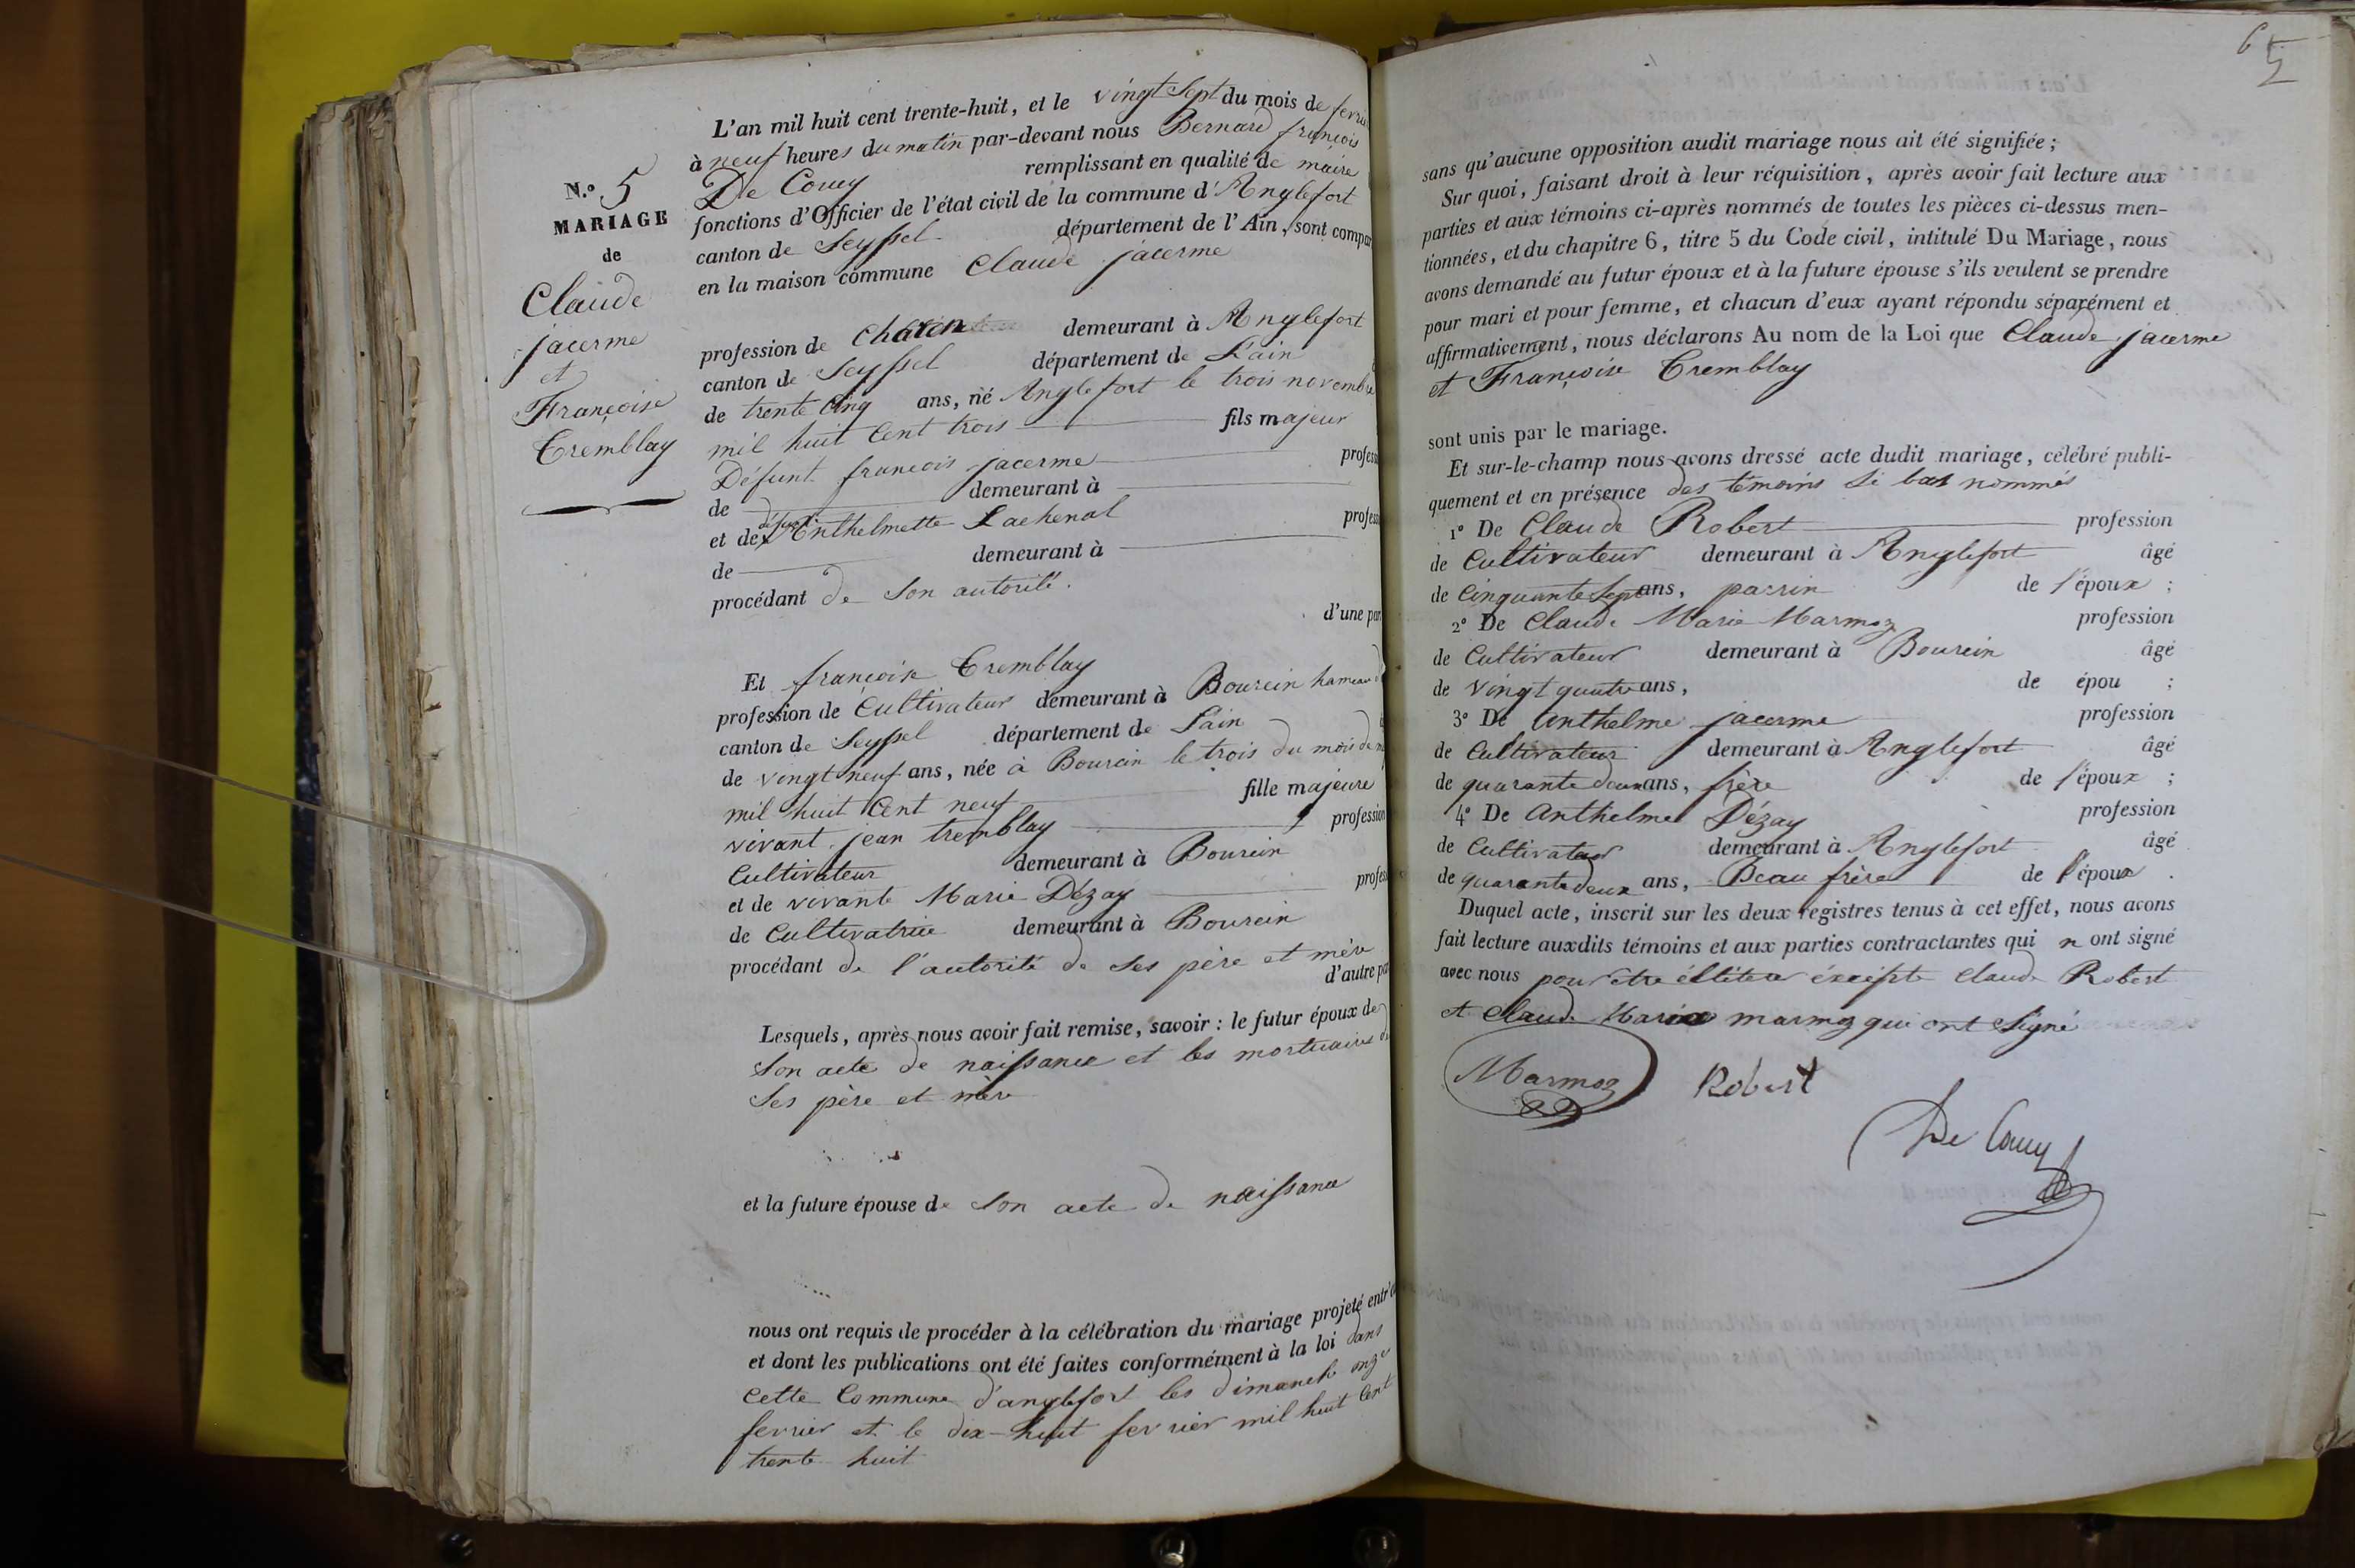 N.º 5
MARIAGE
de
Claude
jacerme
et
Françoise
Tremblay
L'an mil huit cent trente-huit, et le vingt sept du mois de
à neuf heures du matin par-devant nous Bernard françois
De Coucy remplissant en qualité de maire
fonctions d'Officier de l'état civil de la commune d'Anglefort
canton de Seyssel département de l'Ain, sont compar
en la maison commune Claude jacerme
profession de demeurant à Anglefort
canton de Seyssel département de L'ain
de trente cinq ans, né Anglefort le trois novembre
mil huit Cent trois fils majeur
Défunt françois jacerme profess
de demeurant à
et de défunte Anthelmette Lachenal profess
de demeurant à
procédant de Son autorité.
d'une par
Et françoise Tremblay
profession de Cultivateur demeurant à Bourcin hameau d
canton de Seyssel département de L'ain
de vingt neuf ans, née à Bourcin le trois du mois de
mil huit Cent neuf fille majeure
vivant jean tremblay profession
Cultivateur demeurant à Bourcin
et de vivante Marie Dézay profess
de Cultivatrice demeurant à Bourcin
procédant de l'autorité de Ses père et mère
d'autre par
Lesquels, après nous avoir fait remise, savoir : le futur époux de
Son acte de naissance et les mortuaires de
Ses père et mère
et la future épouse de Son acte de naissance
nous ont requis de procéder à la célébration du mariage projeté entr'
et dont les publications ont été faites conformément à la loi dans
Cette Commune d'anglefort les dimanch onze
fevrier et le dix-huit fevrier mil huit Cent
trente huit
5
sans qu'aucune opposition audit mariage nous ait été signifiée ;
Sur quoi, faisant droit à leur réquisition, après avoir fait lecture aux
parties et aux témoins ci-après nommés de toutes les pièces ci-dessus men-
tionnées, et du chapitre 6, titre 5 du Code civil, intitulé Du Mariage, nous
avons demandé au futur époux et à la future épouse s'ils veulent se prendre
pour mari et pour femme, et chacun d'eux ayant répondu séparément et
affirmativement, nous déclarons Au nom de la Loi que Claude jacerme
et Françoise Tremblay
sont unis par le mariage.
Et sur-le-champ nous avons dressé acte dudit mariage, célébré publi-
quement et en présence des témoins Si bas nommés
1º De Claude Robert profession
de Cultivateur demeurant à Anglefort âgé
de Cinquante Sept ans, parrin de l'époux ;
2º De Claude Marie Marmoz profession
de Cultivateur demeurant à Bourcin âgé
de vingt quatre ans, de épou ;
3º De Anthelme jacerme profession
de Cultivateur demeurant à Anglefort âgé
de quarante deux ans, frère de l'époux ;
4º De Anthelme Dézay profession
de Cultivateur demeurant à Anglefort âgé
de quarante deux ans, Beau frère de l'époux .
Duquel acte, inscrit sur les deux registres tenus à cet effet, nous avons
fait lecture auxdits témoins et aux parties contractantes qui n ont signé
avec nous pour être excepte Claude Robert
et Claude Marie marmoz qui ont Signé
Marmoz Robert
De Coucy